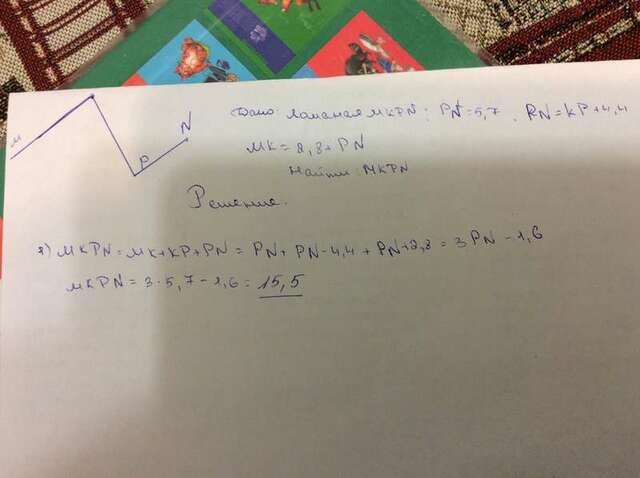 Дано: Ломаная MKPN: PN=5,7. PN=KP+4,4
MK=2,8+PN
Найти: MKPN
Решение.
M
N
P
1) MKPN=MK+KP+PN=PN+PN-4,4+PN+2,8=3PN-1,6
MKPN=3·5,7-1,6=15,5